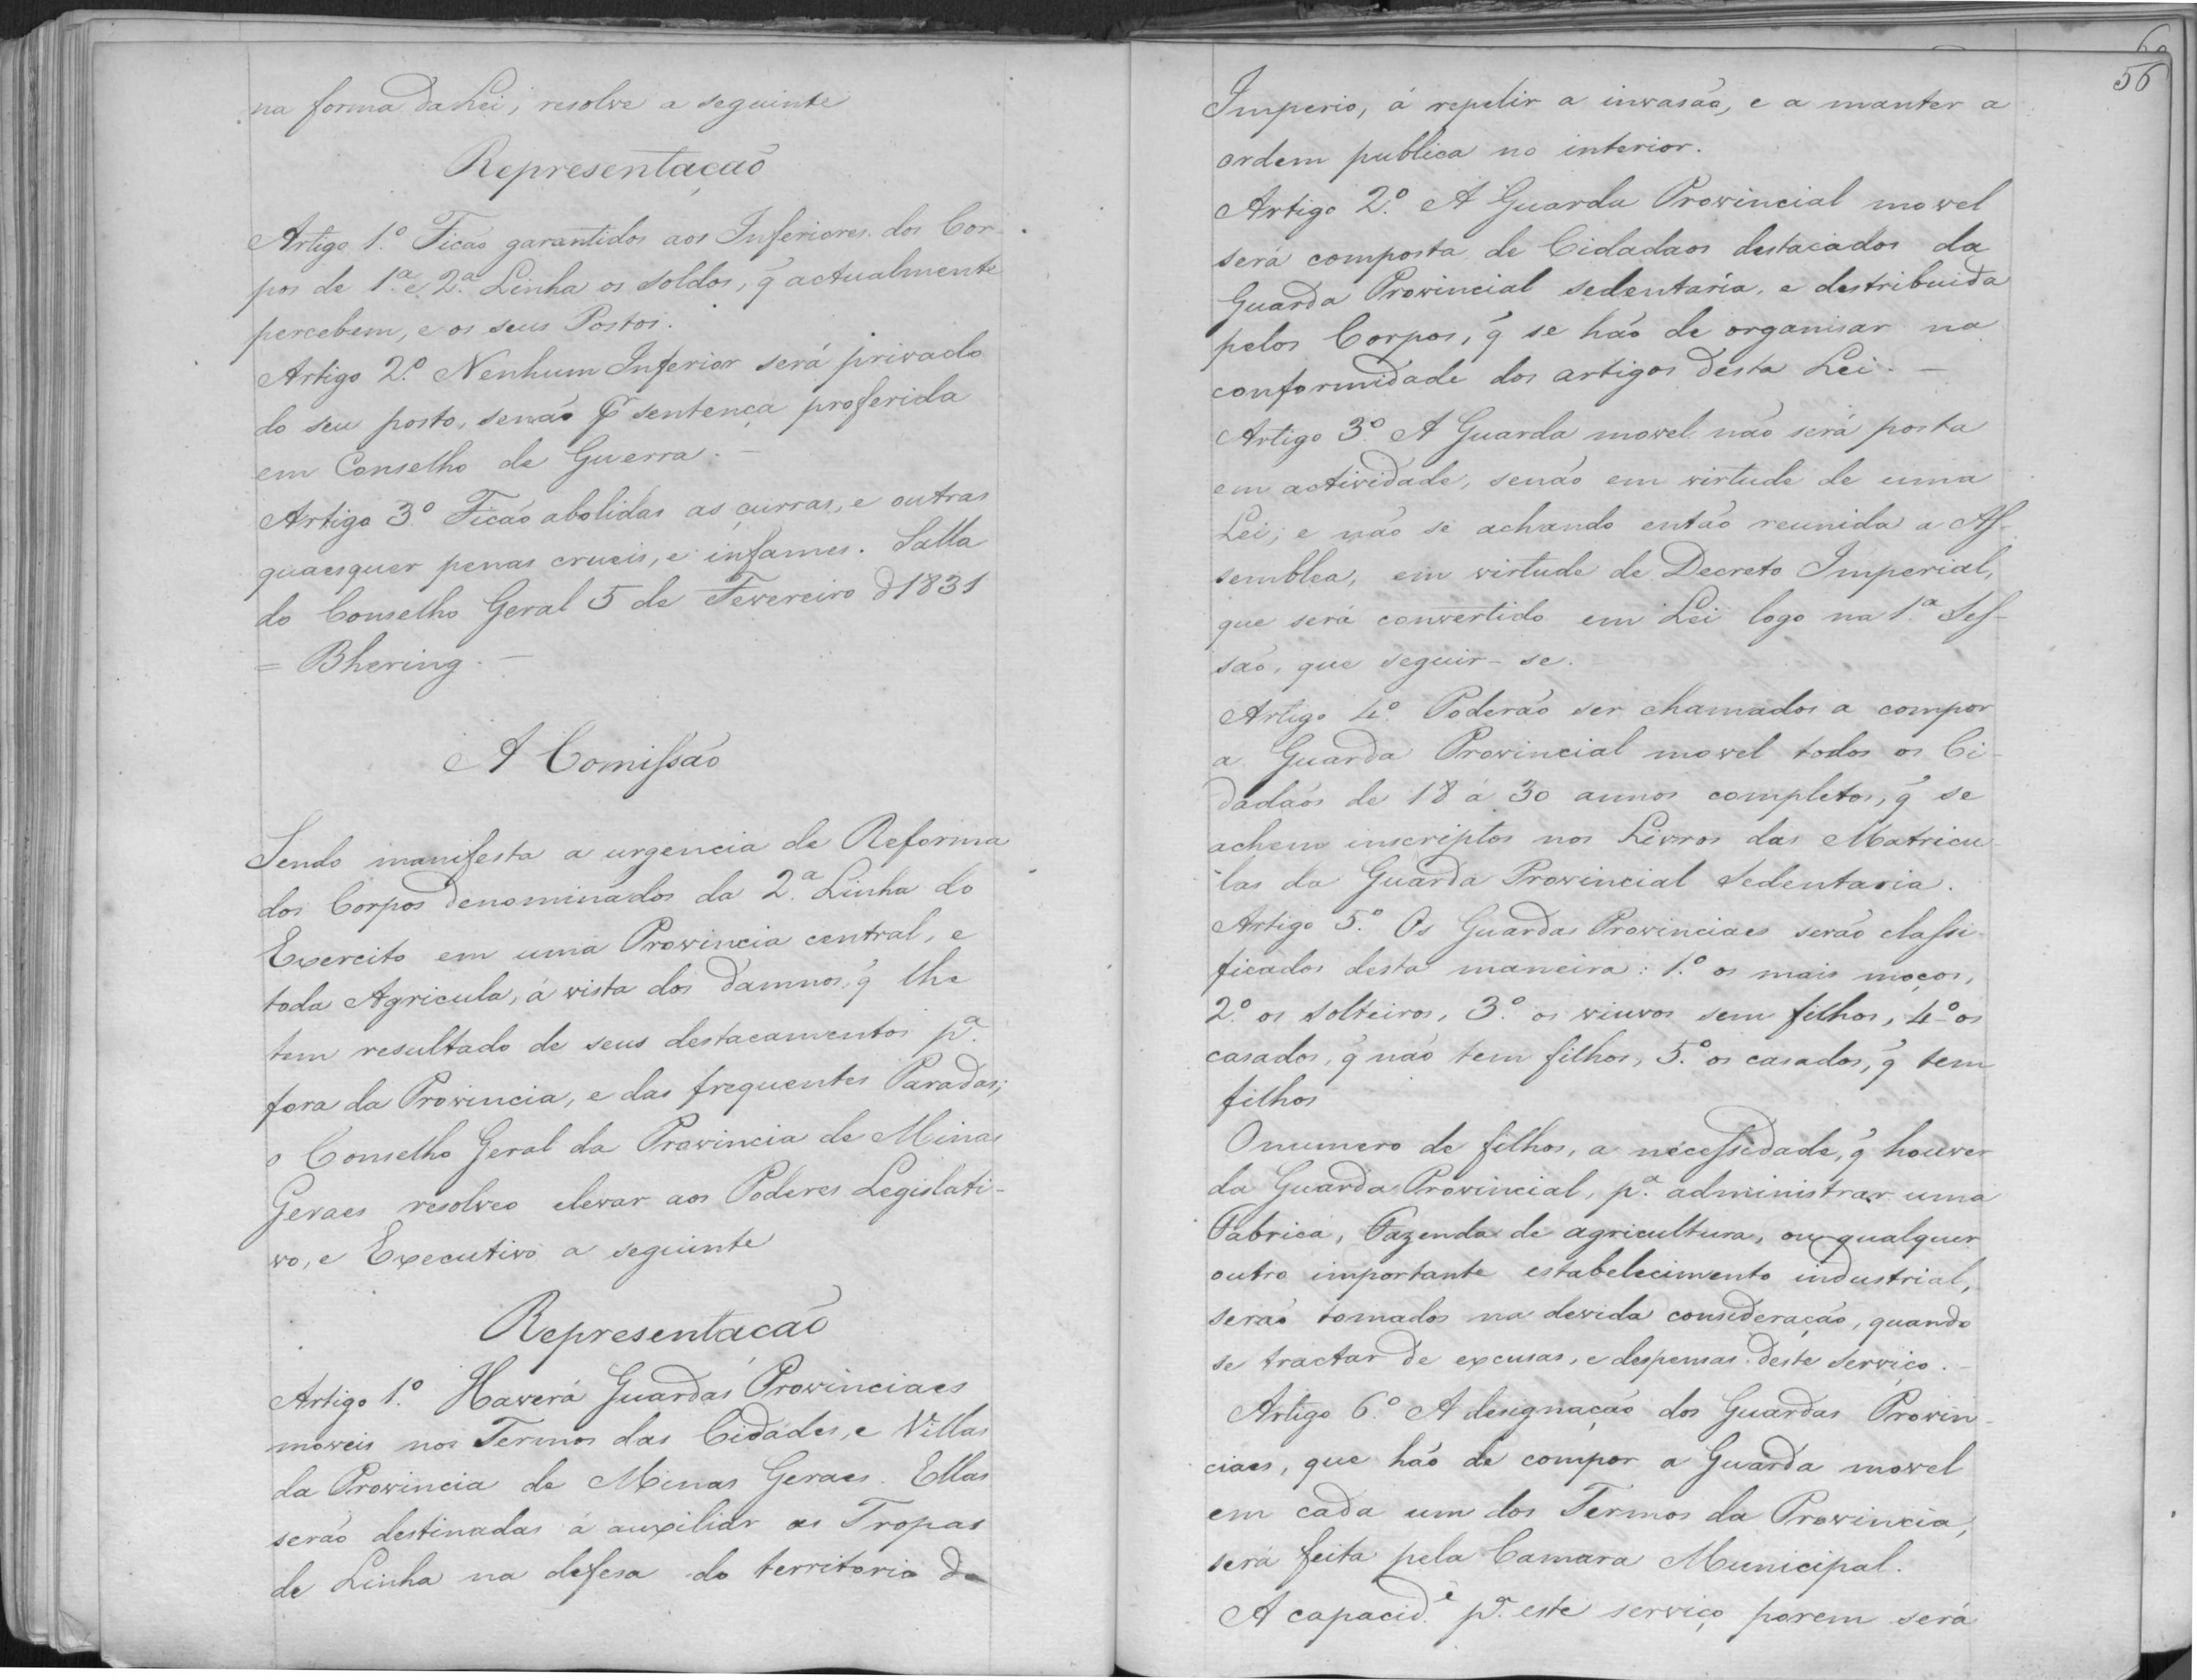 na forma da Lei, resolve a seguinte
Representação
Artigo 1.º Ficão garantidos aos Inferiores dos Cor-
pos de 1.ª e 2.ª Linha os soldos, q̃ actualmente
percebem, e os seus Postos.
Artigo 2.º Nenhum Inferior será privado
do seu posto, senão pr sentença proferida
em Conselho de Guerra. —
Artigo 3.º Ficão abolidas as çurras, e outras
quaesquer penas crueis, e infames. Salla
do Conselho Geral 5 de Fevereiro d 1831
= Bhering. —
A Comissão
Sendo manifesta a urgencia de Reforma
dos Corpos denominados da 2.ª Linha do
Exercito em uma Provincia central, e
toda Agricula, á vista dos damnos, q̃ lhe
tem resultado de seus destacamentos p.ª
fora da Provincia, e das frequentes Paradas;
o Conselho Geral da Provincia de Minas
Geraes resolveo elevar aos Poderes Legislati-
vo, e Executivo a seguinte
Representação
Artigo 1.º Haverá Guardas Provinciaes
moveis nos Termos das Cidades, e Villas
da Provincia de Minas Geraes. Ellas
serão destinadas á auxiliar as Tropas
de Linha na defesa do territorio do
56
Imperio, á repelir a invasão, e a manter a
ordem publica no interior.
Artigo 2.º A Guarda Provincial movel
será composta de Cidadaos destacados da
Guarda Provincial sedentaria, e destribuida
pelos Corpos, q̃ se hão de organisar na
conformidade dos artigos desta Lei. —
Artigo 3.º A Guarda movel não será posta
em actividade, senão em virtude de uma
Lei; e não se achando então reunida a As-
semblea, em virtude de Decreto Imperial,
que será convertido em Lei logo na 1.ª Ses-
são, que seguir-se.
Artigo 4.º Poderão ser chamados a compor
a Guarda Provincial movel todos os Ci-
dadãos de 18 á 30 annos completos, q̃ se
achem inscriptos nos Livros das Matricu-
las da Guarda Provincial Sedentaria.
Artigo 5.º Os Guardas Provinciaes serão classi-
ficados desta maneira: 1.º os mais moços,
2.º os solteiros, 3.º os viuvos sem filhos, 4.º os
casados, q̃ não tem filhos, 5.º os casados, q̃ tem
filhos
O numero de filhos, a necessidade, q̃ houver
da Guarda Provincial, p.ª administrar uma
Fabrica, Fazenda de agricultura, ou qualquer
outro importante estabelecimento industrial,
serão tomados na devida consideração, quando
se tractar de excusas, e despensas deste serviço. —
Artigo 6.º A designação dos Guardas Provin-
ciaes, que hão de compor a Guarda movel
em cada um dos Termos da Provincia,
será feita pela Camara Municipal.
A capacid.e p.ª este serviço porem será